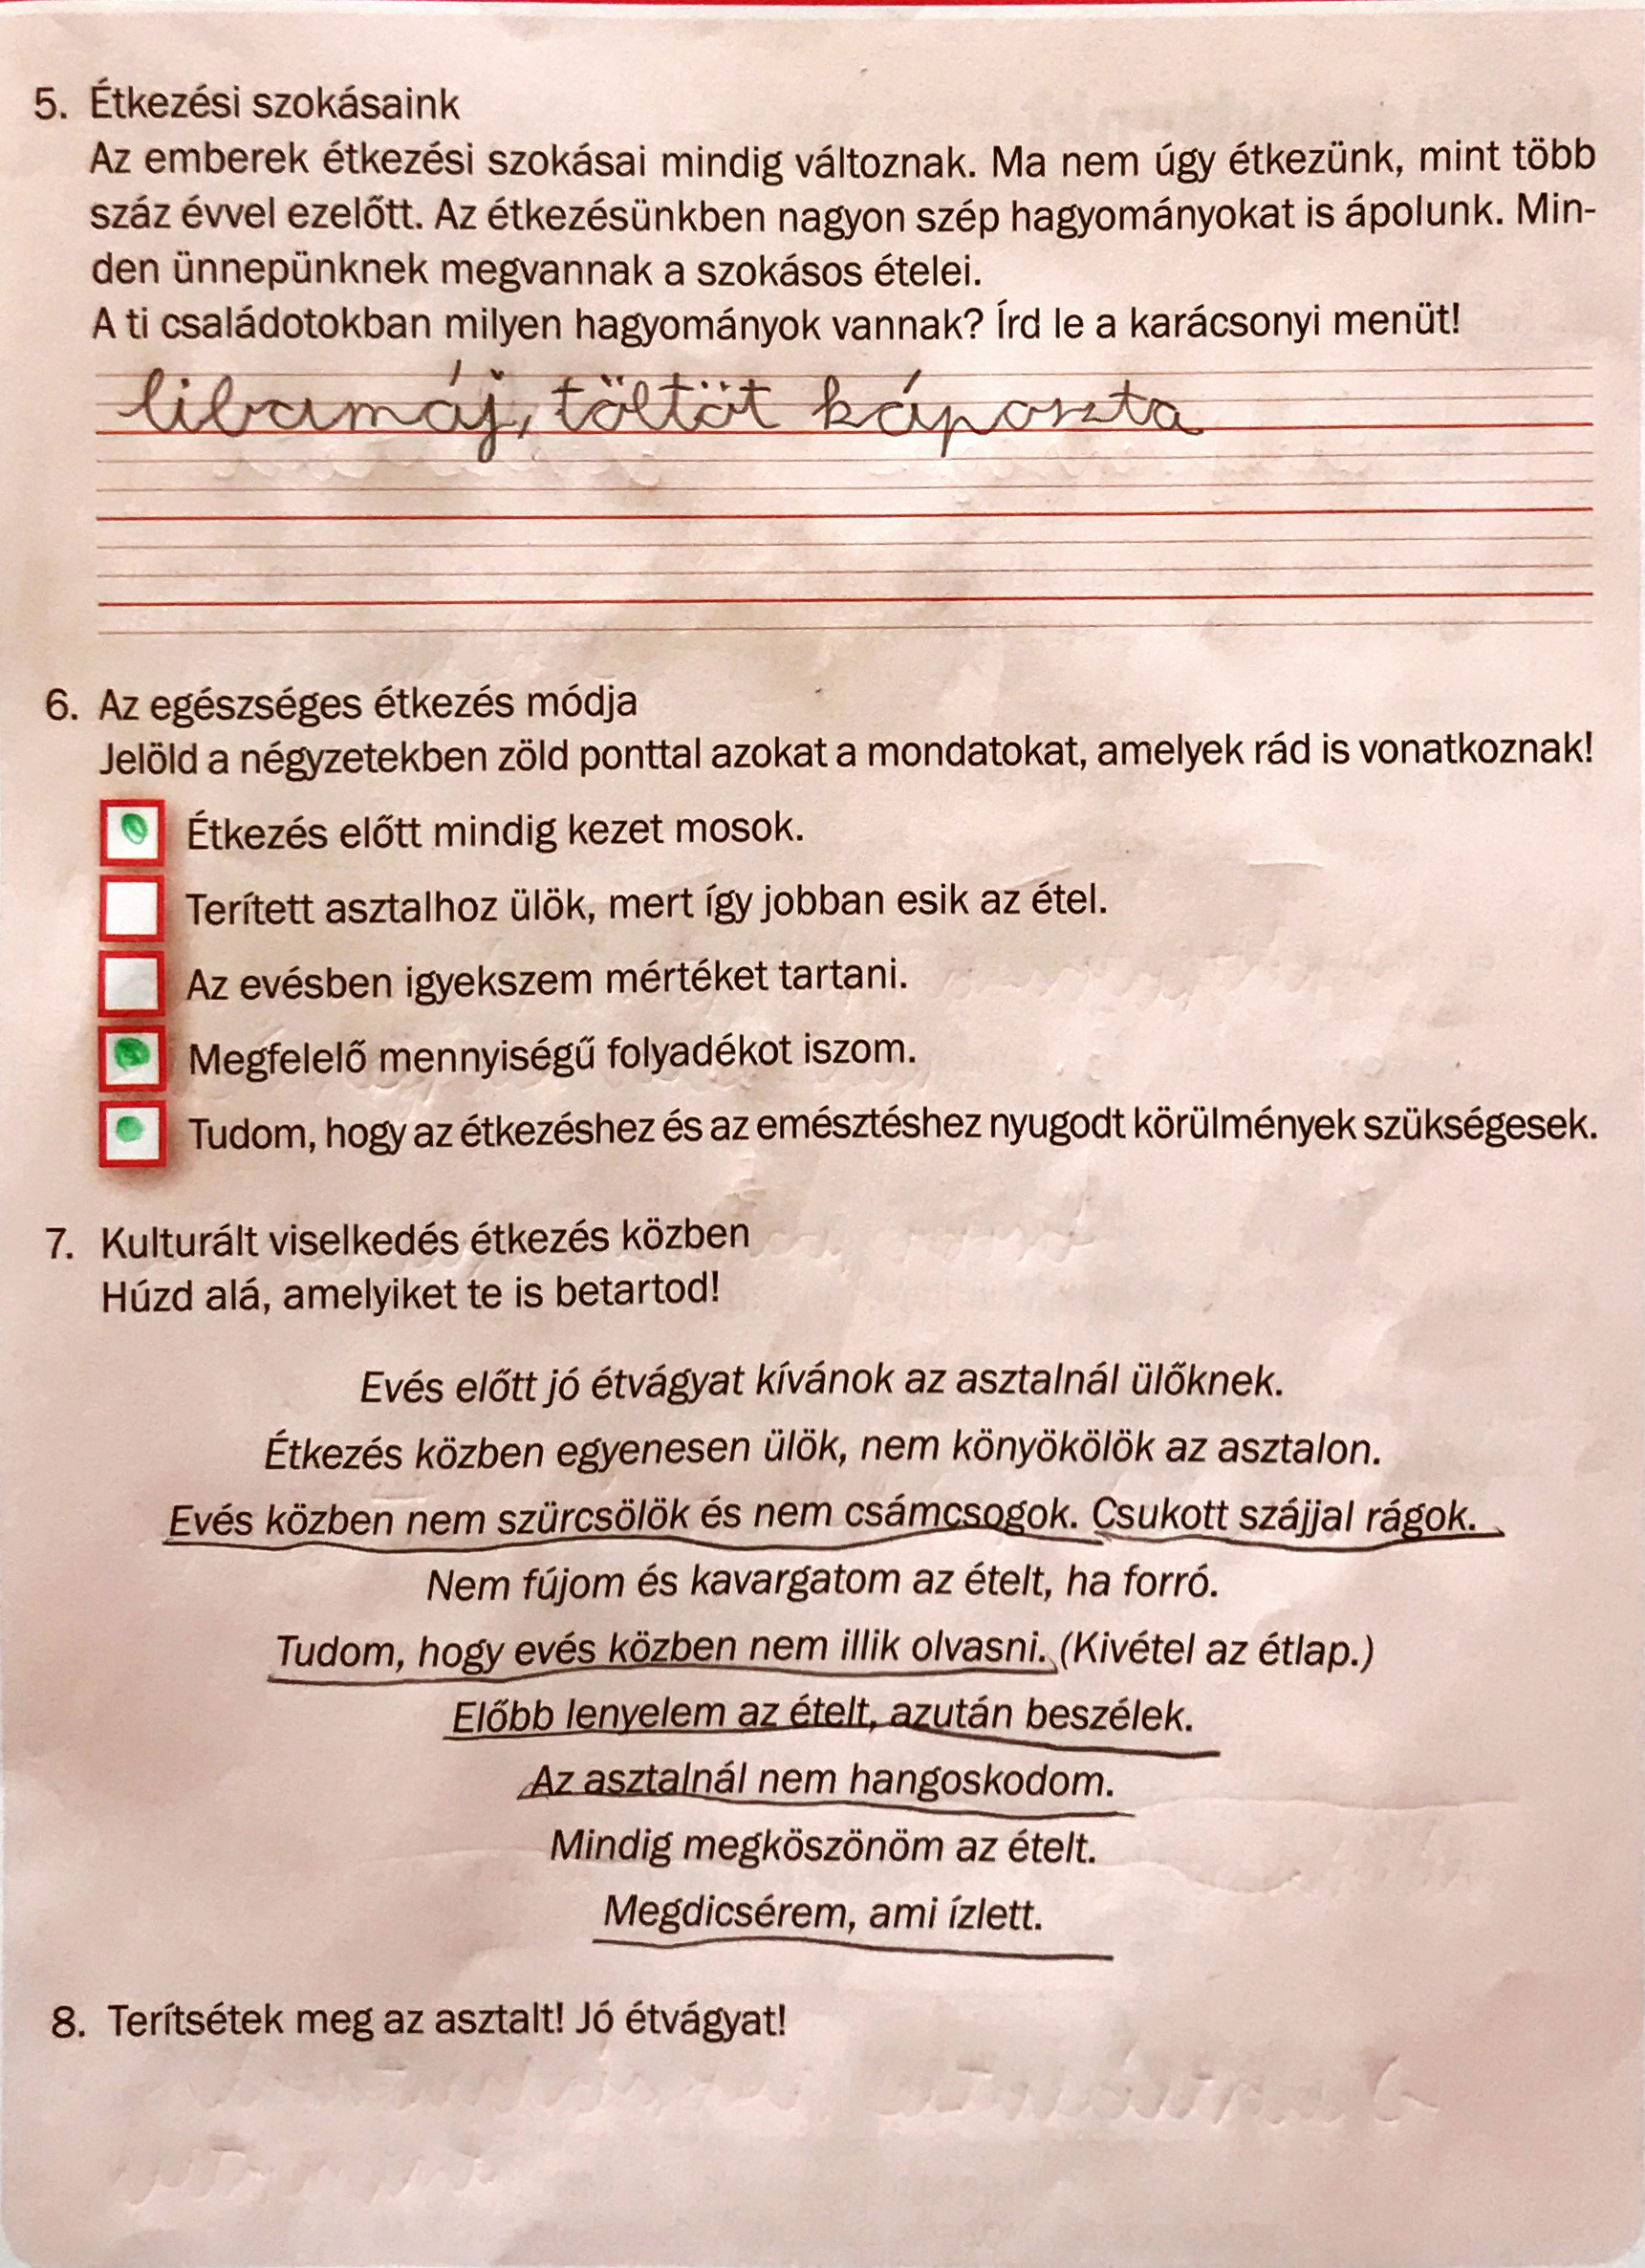 5. Étkezési szokásaink
Az emberek étkezési szokásai mindig változnak. Ma nem úgy étkezünk, mint több
száz évvel ezelőtt. Az étkezésünkben nagyon szép hagyományokat is ápolunk. Min-
den ünnepünknek megvannak a szokásos ételei.
A ti családotokban milyen hagyományok vannak? Írd le a karácsonyi menüt!
libamáj, töltöt káposzta
6. Az egészséges étkezés módja
Jelöld a négyzetekben zöld ponttal azokat a mondatokat, amelyek rád is vonatkoznak!
Étkezés előtt mindig kezet mosok.
Terített asztalhoz ülök, mert így jobban esik az étel.
Az evésben igyekszem mértéket tartani.
Megfelelő mennyiségű folyadékot iszom.
Tudom, hogy az étkezéshez és az emésztéshez nyugodt körülmények szükségesek.
7. Kulturált viselkedés étkezés közben
Húzd alá, amelyiket te is betartod!
Evés előtt jó étvágyat kívánok az asztalnál ülőknek.
Étkezés közben egyenesen ülök, nem könyökölök az asztalon.
Evés közben nem szürcsölök és nem csámcsogok. Csukott szájjal rágok.
Nem fújom és kavargatom az ételt, ha forró.
Tudom, hogy evés közben nem illik olvasni. (Kivétel az étlap.)
Előbb lenyelem az ételt, azután beszélek.
Az asztalnál nem hangoskodom.
Mindig megköszönöm az ételt.
Megdicsérem, ami ízlett.
8. Terítsétek meg az asztalt! Jó étvágyat!